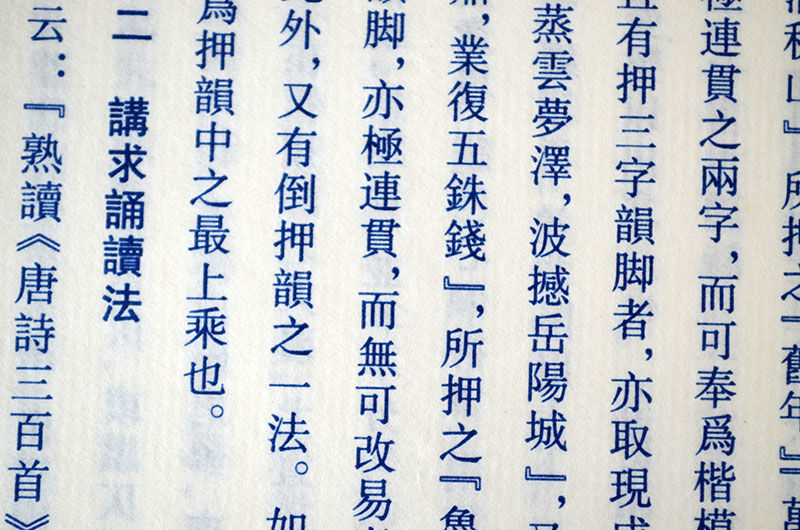 秋山』所押之『舊年』
極連貫之兩字，而可奉爲楷模
有押三字韻脚者，亦取現成
蒸雲夢澤，波撼岳陽城』，
業復五銖錢』，所押之『魚
韻脚，亦極連貫，而無可改易
此外，又有倒押韻之一法。如
爲押韻中之最上乘也。
二 講求誦讀法
云：『熟讀《唐詩三百首》